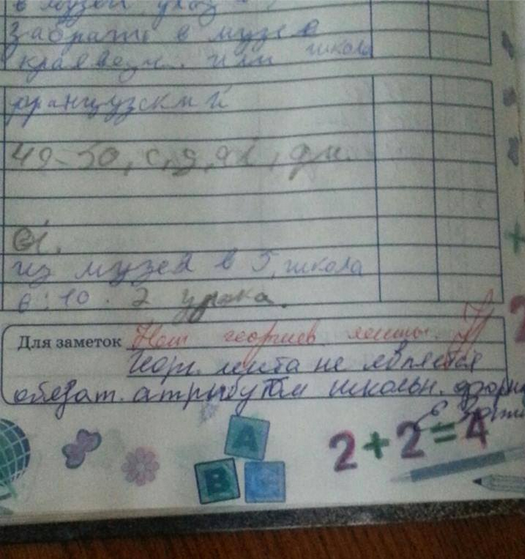 в музей
забрать в музее
краевед. или школа
французский
49-50, с, д,
из музея в 5, школа
6:10. 2 урока.
Для заметок Нет георгиев. ленты.
Георг. лента не является
обязат. атрибутом школьн.
А
В С
2+2=4